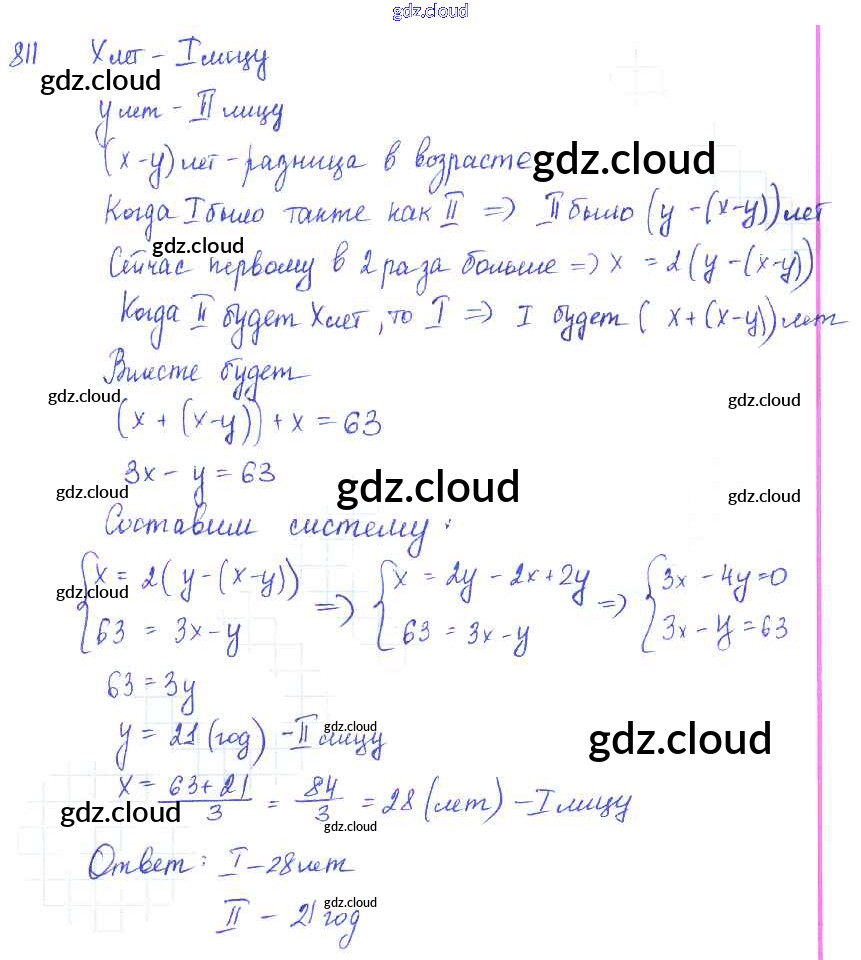 gdz.cloud
811 X лет - I лицу
gdz.cloud
y лет - II лицу
(x-y) лет - разница в возрасте
gdz.cloud
Когда I было так же как II => II было (y - (x-y)) лет
gdz.cloud
Сейчас первому в 2 раза больше => x = 2(y - (x-y))
Когда II будет X лет, то I => I будет ( x + (x-y)) лет
Вместе будет
gdz.cloud
gdz.cloud
(x + (x-y)) + x = 63
3x - y = 63
gdz.cloud
gdz.cloud
gdz.cloud
Составим систему:
{ x = 2(y - (x-y)) => { x = 2y - 2x + 2y => { 3x - 4y = 0
gdz.cloud
63 = 3x - y 63 = 3x - y 3x - y = 63
63 = 3y
gdz.cloud
y = 21 (год) - II лицу
gdz.cloud
x = 63+21/3 = 84/3 = 28 (лет) - I лицу
gdz.cloud
gdz.cloud
Ответ: I - 28 лет
gdz.cloud
II - 21 год